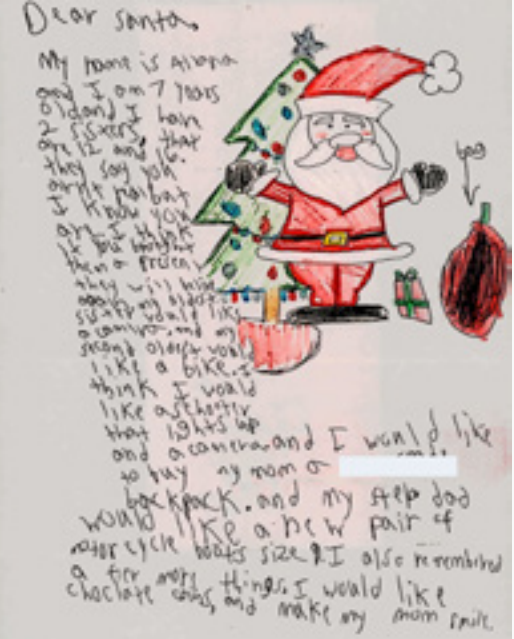 Dear santa,
My name is
and I am 7 years
old and I have
2 sisters, that
are 12 and 16.
they say you
arnt but
I know you
are. I think
if you bought
them a present
they will
again my oldest
sister would like
a and my
second oldest
like a bike. I
think I would
like a
that lights up
and a camera. and I would like
to buy my mom a
backpack. and my step dad
would like a new pair of
motorcycle size I also remembered
a more things. I would like
choclate and make my mom smile
bag